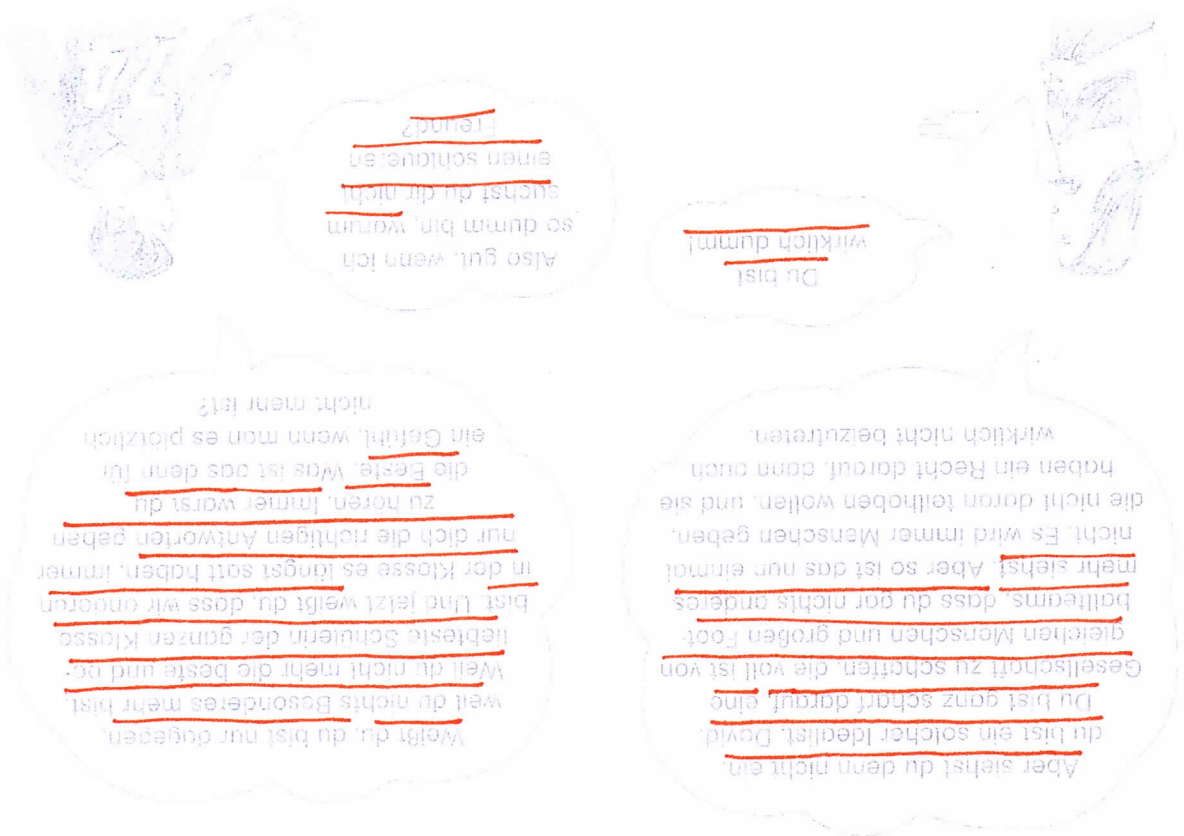 Aber siehst du denn nicht ein,
du bist ein solcher Idealist, David.
Du bist ganz scharf darauf, eine
Gesellschaft zu schaffen, die voll ist von
gleichen Menschen und großen Foot-
ballteams, dass du gar nichts anderes
mehr siehst. Aber so ist das nun einmal
nicht. Es wird immer Menschen geben,
die nicht daran teilhaben wollen, und sie
haben ein Recht darauf, dann auch
wirklich nicht beizutreten.
Weißt du, du bist nur dagegen,
weil du nichts Besonderes mehr bist.
Weil du nicht mehr die beste und ge-
liebteste Schülerin der ganzen Klasse
bist. Und jetzt weißt du, dass wir anderen
in der Klasse es längst satt haben, immer
nur dich die richtigen Antworten geben
zu hören. Immer warst du
die Beste. Was ist das denn für
ein Gefühl, wenn man es plötzlich
nicht mehr ist?
Du bist
wirklich dumm!
Also gut, wenn ich
so dumm bin, warum
suchst du dir nicht
einen schlaueren
Freund?